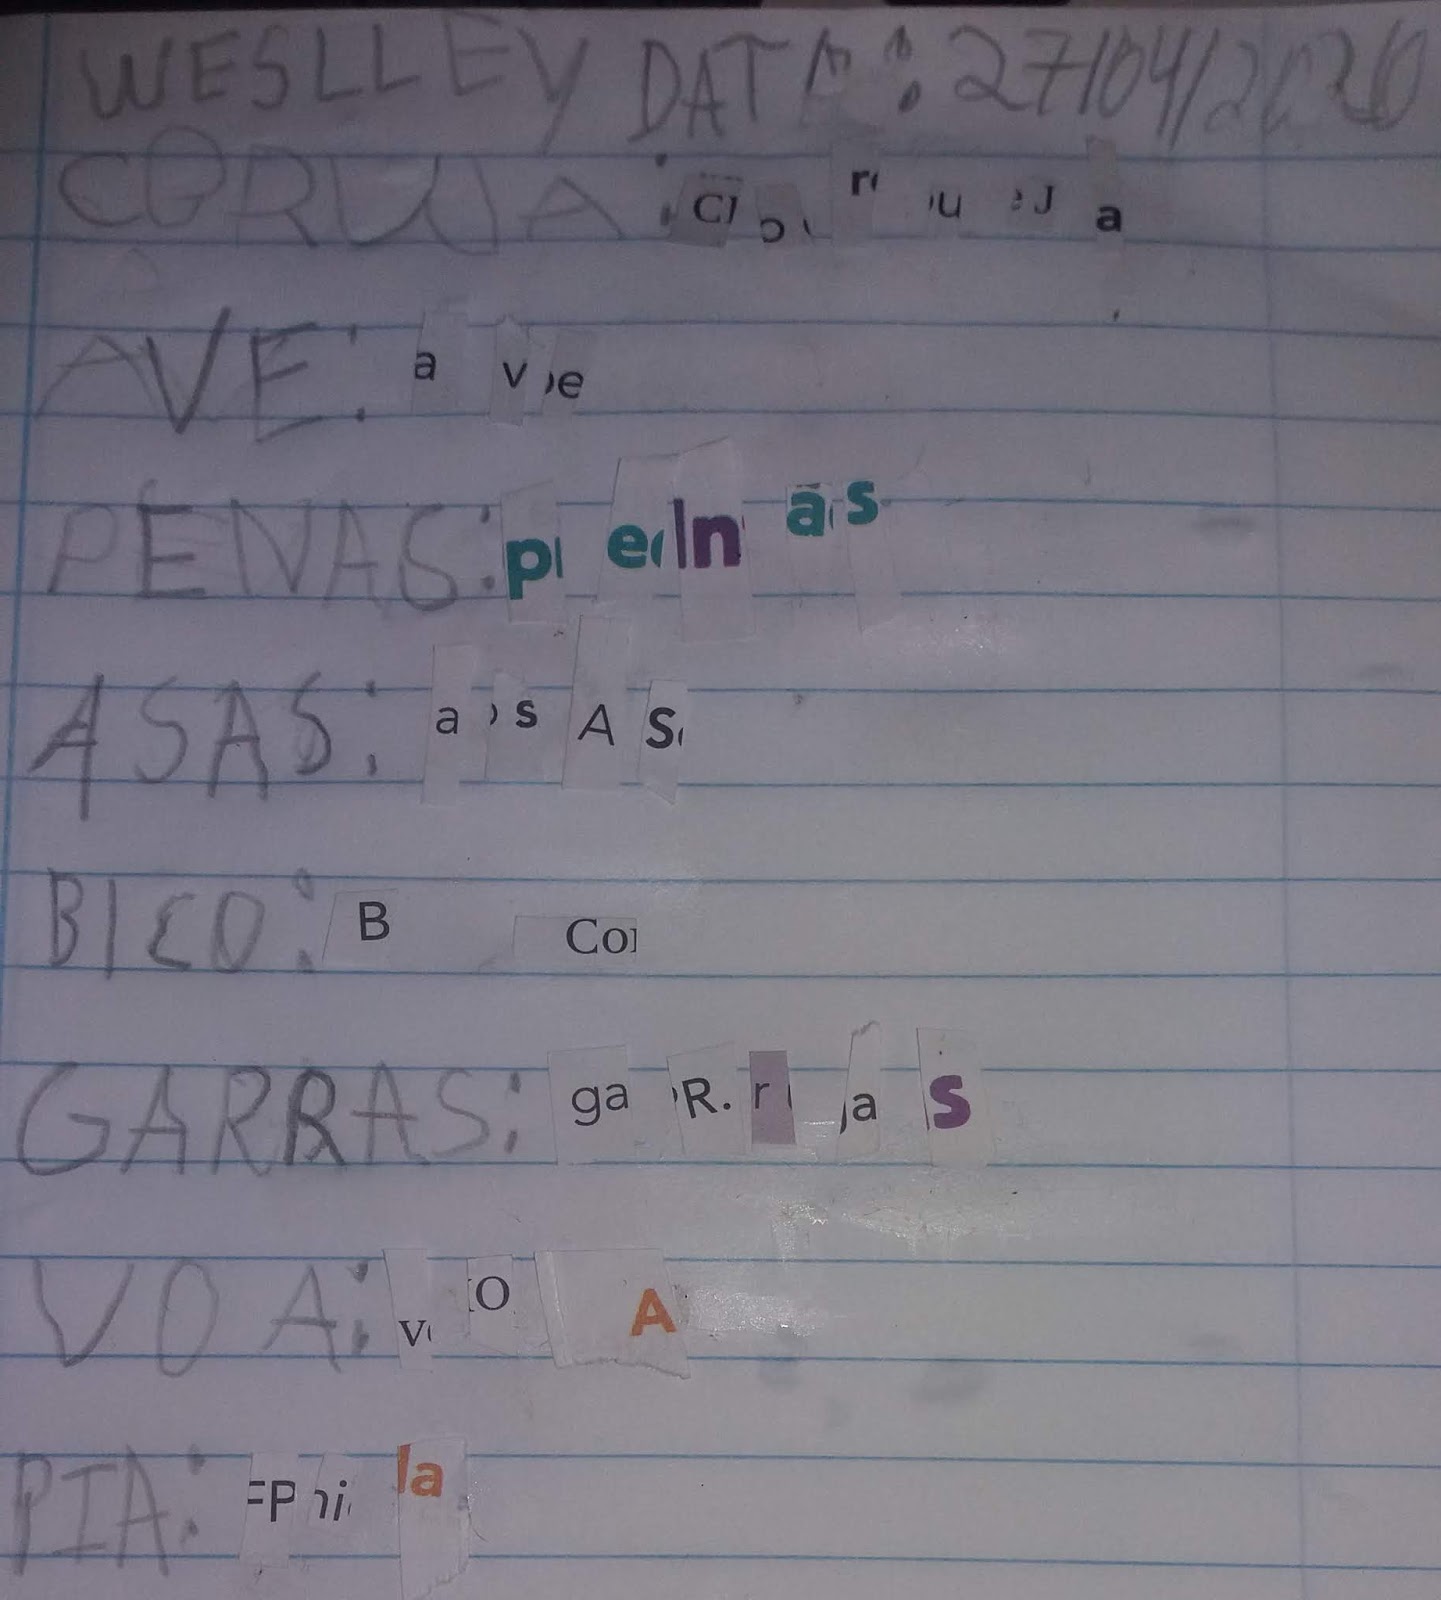 WESLLEY DATA: 27/04/2020
CORUJA: c o r u J a
AVE: a v e
PENAS: p e n a s
ASAS: a s A S
BICO: B Co
GARRAS: ga R. r a S
VOA: v O A
PIA: P i a